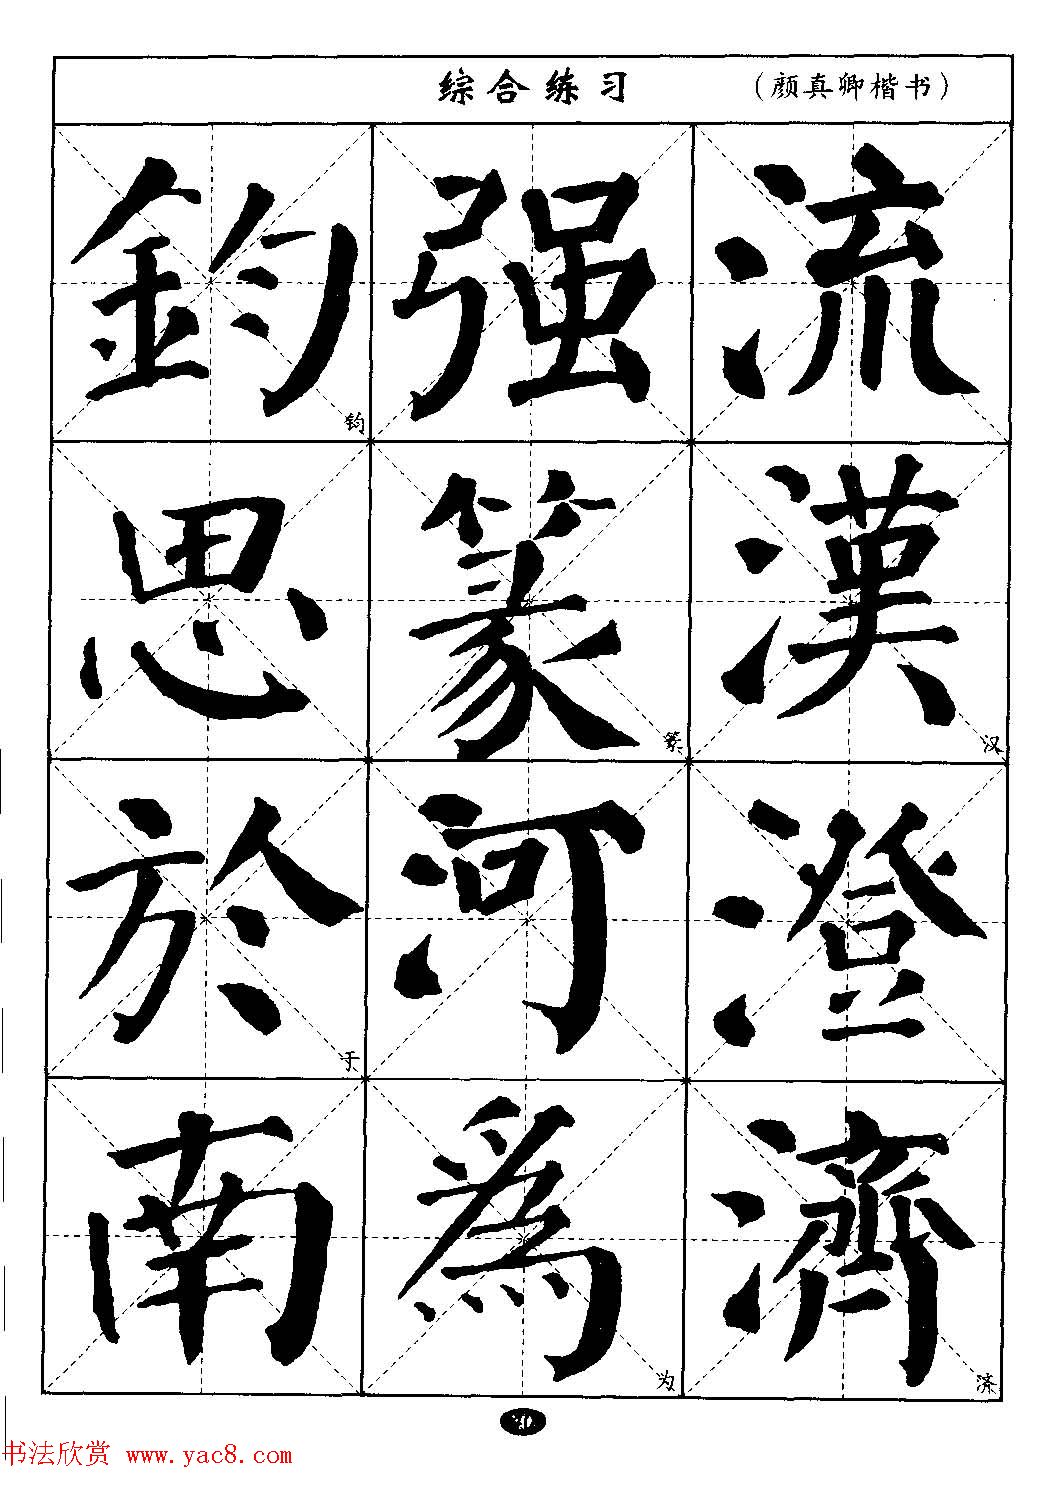 综合练习 (颜真卿楷书)
鈞 钧 强 流
思 篆 篆 漢 汉
於 于 河 澄
南 為 为 濟 济
书法欣赏 www.yac8.com